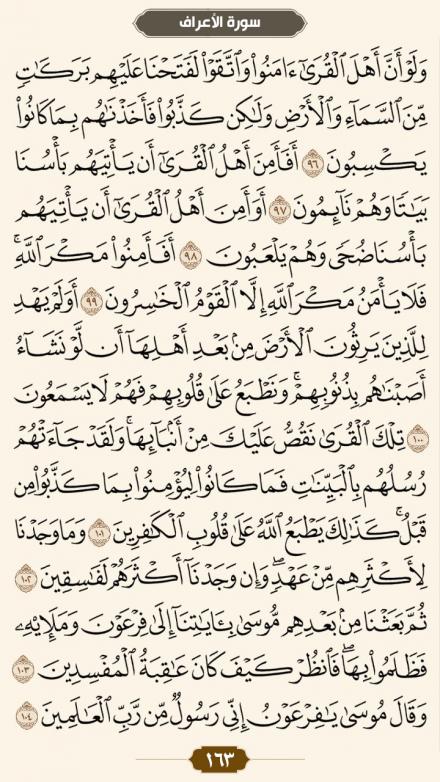 سورة الأعراف
وَلَوْ أَنَّ أَهْلَ ٱلْقُرَىٰٓ ءَامَنُوا۟ وَٱتَّقَوْا۟ لَفَتَحْنَا عَلَيْهِم بَرَكَٰتٍ
مِّنَ ٱلسَّمَآءِ وَٱلْأَرْضِ وَلَٰكِن كَذَّبُوا۟ فَأَخَذْنَٰهُم بِمَا كَانُوا۟
يَكْسِبُونَ ٩٦ أَفَأَمِنَ أَهْلُ ٱلْقُرَىٰٓ أَن يَأْتِيَهُم بَأْسُنَا
بَيَٰتًا وَهُمْ نَآئِمُونَ ٩٧ أَوَأَمِنَ أَهْلُ ٱلْقُرَىٰٓ أَن يَأْتِيَهُم
بَأْسُنَا ضُحًى وَهُمْ يَلْعَبُونَ ٩٨ أَفَأَمِنُوا۟ مَكْرَ ٱللَّهِۚ
فَلَا يَأْمَنُ مَكْرَ ٱللَّهِ إِلَّا ٱلْقَوْمُ ٱلْخَٰسِرُونَ ٩٩ أَوَلَمْ يَهْدِ
لِلَّذِينَ يَرِثُونَ ٱلْأَرْضَ مِنۢ بَعْدِ أَهْلِهَآ أَن لَّوْ نَشَآءُ
أَصَبْنَٰهُم بِذُنُوبِهِمْۚ وَنَطْبَعُ عَلَىٰ قُلُوبِهِمْ فَهُمْ لَا يَسْمَعُونَ
١٠٠ تِلْكَ ٱلْقُرَىٰ نَقُصُّ عَلَيْكَ مِنْ أَنۢبَآئِهَاۚ وَلَقَدْ جَآءَتْهُمْ
رُسُلُهُم بِٱلْبَيِّنَٰتِ فَمَا كَانُوا۟ لِيُؤْمِنُوا۟ بِمَا كَذَّبُوا۟ مِن
قَبْلُۚ كَذَٰلِكَ يَطْبَعُ ٱللَّهُ عَلَىٰ قُلُوبِ ٱلْكَٰفِرِينَ ١٠١ وَمَا وَجَدْنَا
لِأَكْثَرِهِم مِّنْ عَهْدٍۖ وَإِن وَجَدْنَآ أَكْثَرَهُمْ لَفَٰسِقِينَ ١٠٢
ثُمَّ بَعَثْنَا مِنۢ بَعْدِهِم مُّوسَىٰ بِـَٔايَٰتِنَآ إِلَىٰ فِرْعَوْنَ وَمَلَإِي۟هِۦ
فَظَلَمُوا۟ بِهَاۖ فَٱنظُرْ كَيْفَ كَانَ عَٰقِبَةُ ٱلْمُفْسِدِينَ ١٠٣
وَقَالَ مُوسَىٰ يَٰفِرْعَوْنُ إِنِّى رَسُولٌ مِّن رَّبِّ ٱلْعَٰلَمِينَ ١٠٤
١٦٣